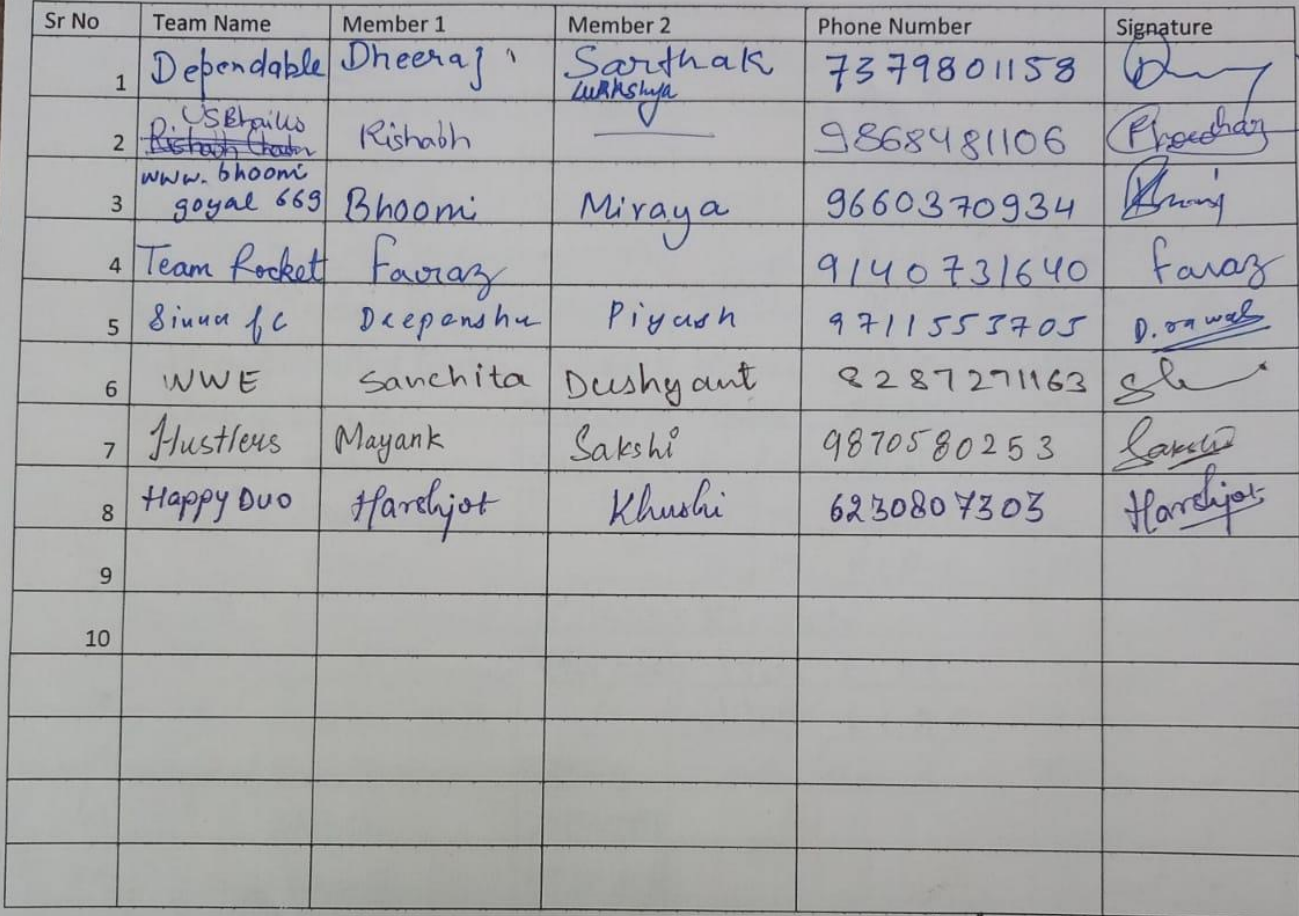 Sr No Team Name Member 1 Member 2 Phone Number Signature
1 Dependable Dheeraj Sarthak 7379801158
Lukkshya
2 Rishabh 9868481106
www.bhoomi
3 goyal 669 Bhoomi Miraya 9660370934
4 Team Rocket Faraz 9140731640 faraz
5 fc Deepanshu Piyush 9711553705 D.rawat
6 WWE Sanchita Dushyant 8287271163
7 Hustlers Mayank Sakshi 9870580253 Sakshi
8 Happy Duo Harshjot Khushi 6230807303 Harshjot
9
10